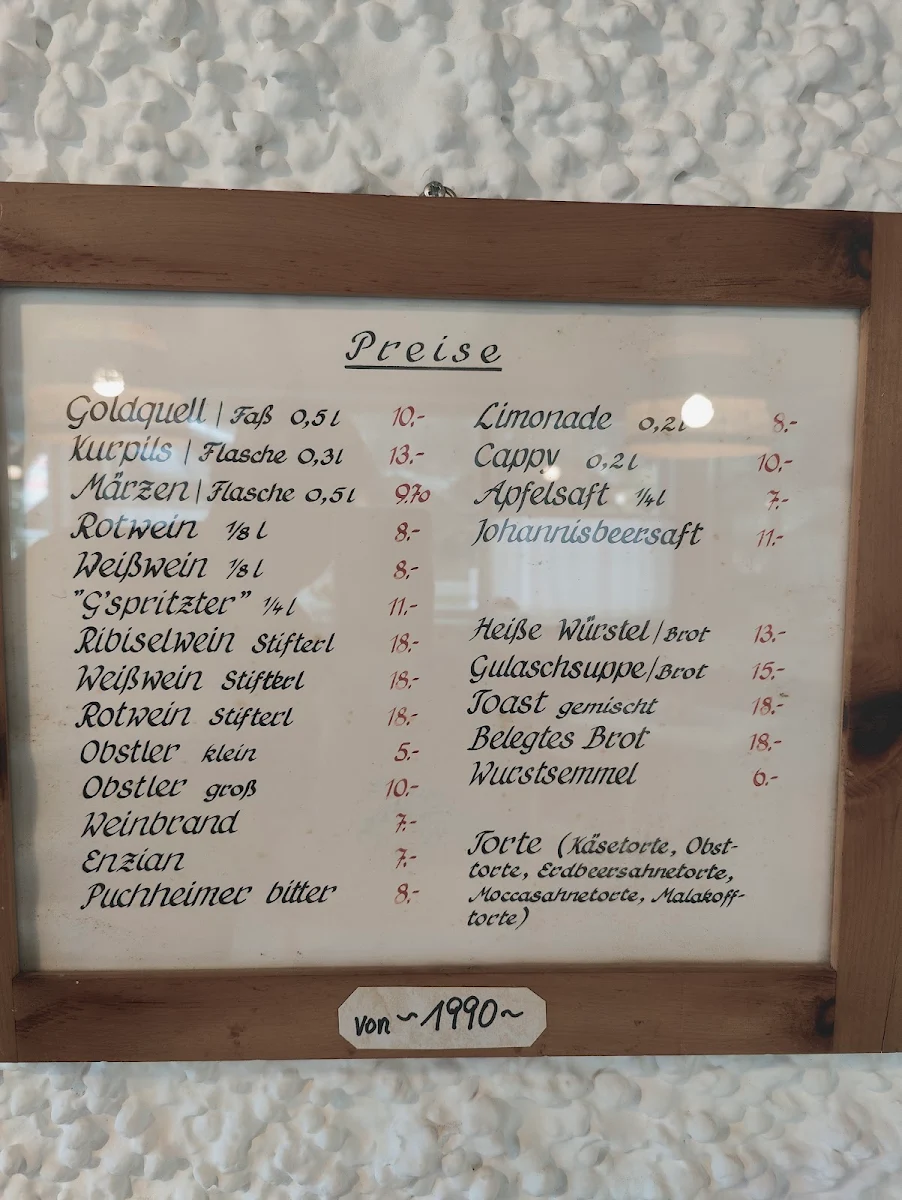 Preise
Goldquell | Faß 0,5 l 10.-
Kurpils | Flasche 0,3l 13.-
Märzen | Flasche 0,5l 9.70
Rotwein 1/8 l 8.-
Weißwein 1/8 l 8.-
"G'spritzter" 1/4 l 11.-
Ribiselwein Stifterl 18.-
Weißwein Stifterl 18.-
Rotwein Stifterl 18.-
Obstler klein 5.-
Obstler groß 10.-
Weinbrand 7.-
Enzian 7.-
Puchheimer bitter 8.-
Limonade 0,2l 8.-
Cappy 0,2l 10.-
Apfelsaft 1/4 l 7.-
Johannisbeersaft 11.-
Heiße Würstel/Brot 13.-
Gulaschsuppe/Brot 15.-
Toast gemischt 18.-
Belegtes Brot 18.-
Wurstsemmel 6.-
Torte (Käsetorte, Obst-
torte, Erdbeersahnetorte,
Moccasahnetorte, Malakoff-
torte)
von ~ 1990 ~